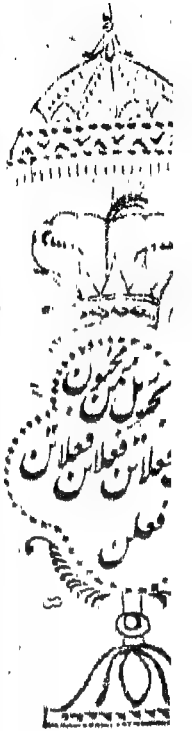 بحر رمل مخبون
فعلاتن فعلاتن فعلاتن
فعلن